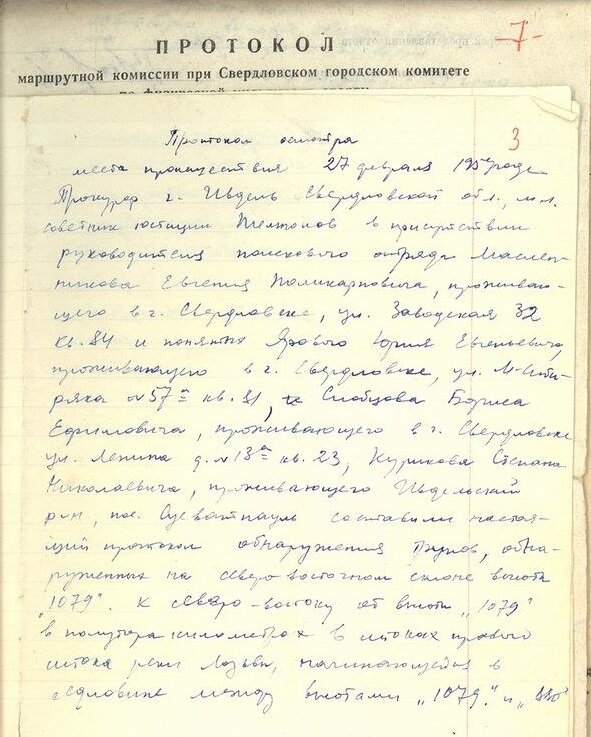 -7-
ПРОТОКОЛ
маршрутной комиссии при Свердловском городском комитете
по физической
3
Протокол осмотра
места происшествия 27 февраля 1959 года
Прокурор г. Ивдель Свердловской обл., мл.
советник юстиции Темпалов в присутствии
руководителя поискового отряда Маслен-
никова Евгения Поликарповича, проживаю-
щего в г. Свердловске, ул. Заводская 32
кв. 84 и понятых Ярового Юрия Евгеньевича,
проживающего в г. Свердловске, ул. М-Сиби-
ряка № 57 кв. 81, Слобцова Бориса
Ефимовича, проживающего в г. Свердловске
ул. Ленина д. № 13а кв. 23, Курикова Степана
Николаевича, проживающего Ивдельский
р-н, пос. Суеватпауль составили настоя-
щий протокол обнаружения трупов, обна-
руженных на северо восточном склоне высоты
"1079". К северо-востоку от высоты "1079"
в полутора километрах в истоках правого
истока реки Лозьвы, начинающейся в
седловине между высотами "1079" и "880"